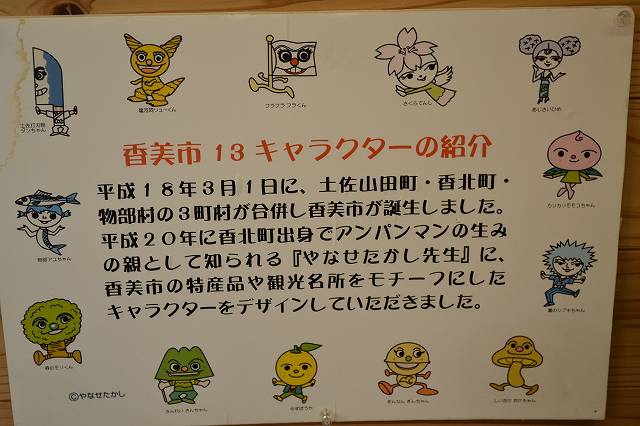 香美市13キャラクターの紹介
平成18年3月1日に、土佐山田町・香北町・
物部村の3町村が合併し香美市が誕生しました。
平成20年に香北町出身でアンパンマンの生み
の親として知られる『やなせたかし先生』に、
香美市の特産品や観光名所をモチーフにした
キャラクターをデザインしていただきました。
龍河洞リューくん
フラフラ フラくん
さくらてんし
あじさいひめ
カリカリモモコちゃん
物部アユちゃん
森のモリくん
さんれい さんちゃん
ゆずぼうや
ぎんなん ぎんちゃん
しい茸 たけちゃん
©やなせたかし